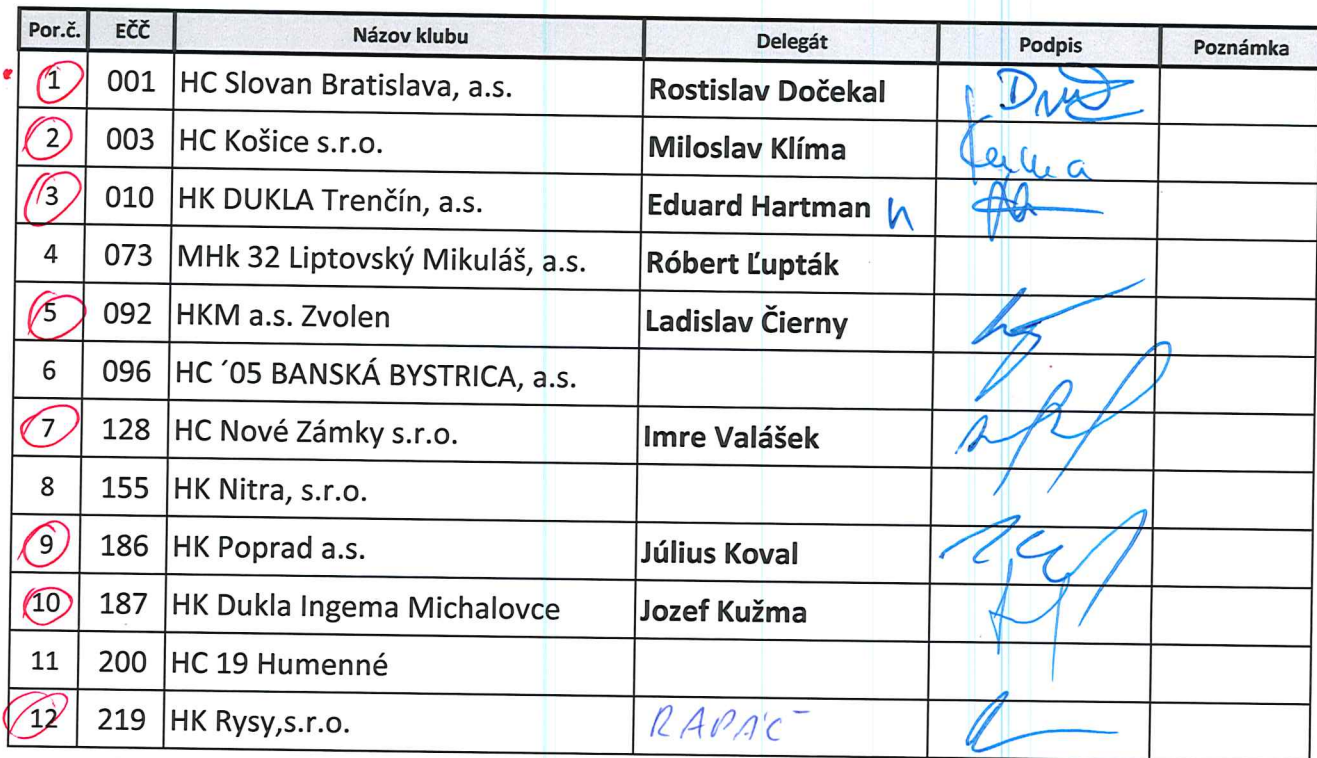 Por.č. EČČ Názov klubu Delegát Podpis Poznámka
1 001 HC Slovan Bratislava, a.s. Rostislav Dočekal
2 003 HC Košice s.r.o. Miloslav Klíma
3 010 HK DUKLA Trenčín, a.s. Eduard Hartman
4 073 MHk 32 Liptovský Mikuláš, a.s. Róbert Ľupták
5 092 HKM a.s. Zvolen Ladislav Čierny
6 096 HC ´05 BANSKÁ BYSTRICA, a.s.
7 128 HC Nové Zámky s.r.o. Imre Valášek
8 155 HK Nitra, s.r.o.
9 186 HK Poprad a.s. Július Koval
10 187 HK Dukla Ingema Michalovce Jozef Kužma
11 200 HC 19 Humenné
12 219 HK Rysy,s.r.o. RAPÁČ